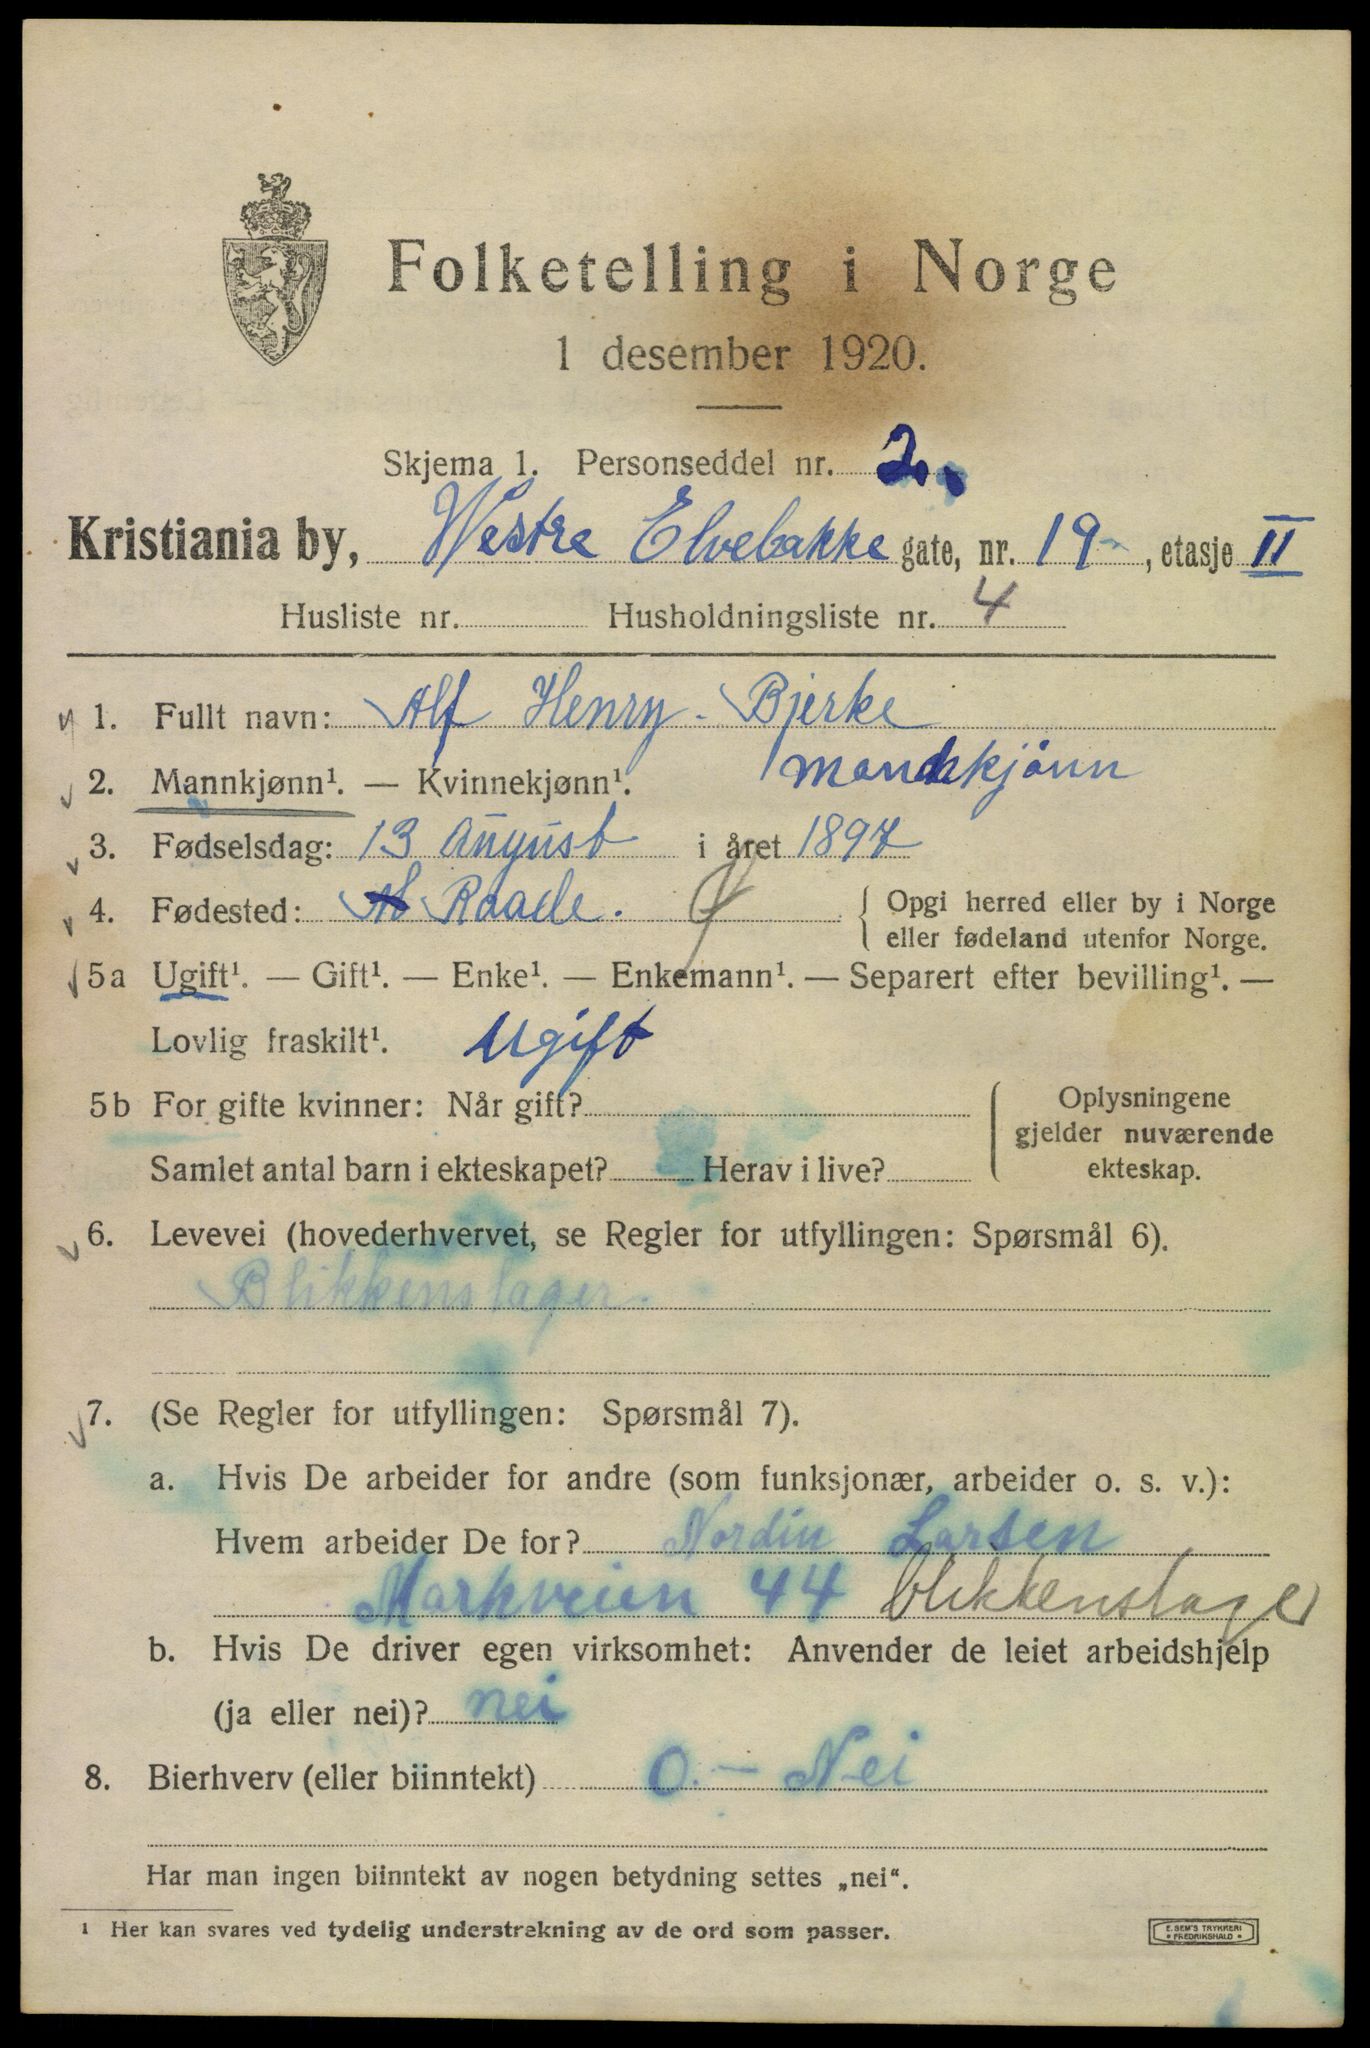 Folketelling i Norge
1 desember 1920.
Skjema 1. Personseddel nr. 2.
Kristiania by, Westre Elvebakke gate, nr. 19 , etasje II
Husliste nr. Husholdningsliste nr. 4
1. Fullt navn: Alf Henry Bjerke
2. Mannkjønn¹. — Kvinnekjønn¹. mandkjönn
3. Fødselsdag: 13 August i året 1897
4. Fødested: Raade. { Opgi herred eller by i Norge
eller fødeland utenfor Norge.
5a Ugift¹. — Gift¹. — Enke¹. — Enkemann¹. — Separert efter bevilling¹. —
Lovlig fraskilt¹. Ugift
5b For gifte kvinner: Når gift? Oplysningene
gjelder nuværende
Samlet antal barn i ekteskapet? Herav i live? ekteskap.
6. Levevei (hovederhvervet, se Regler for utfyllingen: Spørsmål 6).
Blikkenslager.
7. (Se Regler for utfyllingen: Spørsmål 7).
a. Hvis De arbeider for andre (som funksjonær, arbeider o. s. v.):
Hvem arbeider De for? Nordin Larsen
Markveien 44 blikkenslager
b. Hvis De driver egen virksomhet: Anvender de leiet arbeidshjelp
(ja eller nei)? nei
8. Bierhverv (eller biinntekt) 0. — Nei
Har man ingen biinntekt av nogen betydning settes „nei“.
¹ Her kan svares ved tydelig understrekning av de ord som passer.
E. SEM'S TRYKKERI
• FREDRIKSHALD •